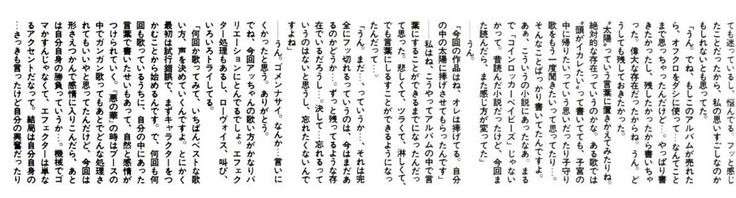 ても迷っているし、悩んでる。フッと感じ
たことだったから、私の思いすごしなのか
もしれないとも思ったし。
「うん。でね、もしこのアルバムが売れた
ら、オフクロをダシに使って…なんてこと
まで思っちゃったんだけど…。やっぱり書
きたかったし、残したかったから書いちゃ
った。偉大な存在だったからね。うん。ど
うしても残しておきたかった。
"太陽"っていう言葉に置きかえてみたりね。
絶対的な存在っていうのかな、ある歌では
"頭がイカしたい"って書いてても、子宮の
中に帰りたいっていう思いだったり子守り
歌をもう一度聞きたいって思ってたり…。
そんなことばっかり書いてたんですよ。
あぁ、こういうの小説にあったなぁ。まる
で「コインロッカーベイビーズ」じゃない
かって。昔読んだ小説だったけど、今回ま
た読んだら、また感じ方が変ってた」
──うん。
「今回の作品はね、オレは捧げてる。自分
の中の太陽に捧げさせてもらったんです」
──私はね、こうやってアルバムの中で言
葉にすることができるまでになったんだっ
て思った。悲しくて、ツラくて、淋しくて、
でも言葉にしするることができるようになっ
たんだって…。
「うん。まだ…っていうか…、それは完
全にフッ切れるっていうのは、今はまだあ
るのかどうか…。ずっと残ってるような存
在でいるだろうし…決して…忘れるって
いうのはないと思うし、忘れたくないんで
すよね」
──うん。ゴメンナサイ。なんか…言いに
くかったと思う。ありがとう。
でね、今回アッちゃんの歌い方がかなりバ
リエーションにとんでるでしょ。エフェク
ター処理もあるし、ローヴォイス、叫び、
いろいろトライしてる。
「何回か歌ってみて、いちばんベストな歌
い方、声を決めていくんですよ。とにかく
最初は試行錯誤で、まずキャラクターをつ
かむことから始めるんです。で、何回も何
回も歌っているうちに、自分の中にあった
言葉で書いたせいもあって、自然と感情が
つけられていく。『悪の華』の時はブースの
中でガンガン歌ってもあとでどんな処理さ
れてもいいやと思ってたんだけど、今回は
形さえつかんで感情に入りこんだら、あと
は自分自身の勝負っていうか…。機械でゴ
マかすんじゃなくて、エフェクターは単な
るアクセントだなって。結局は自分自身の
…さっきも言ったけど自分の興奮だったり